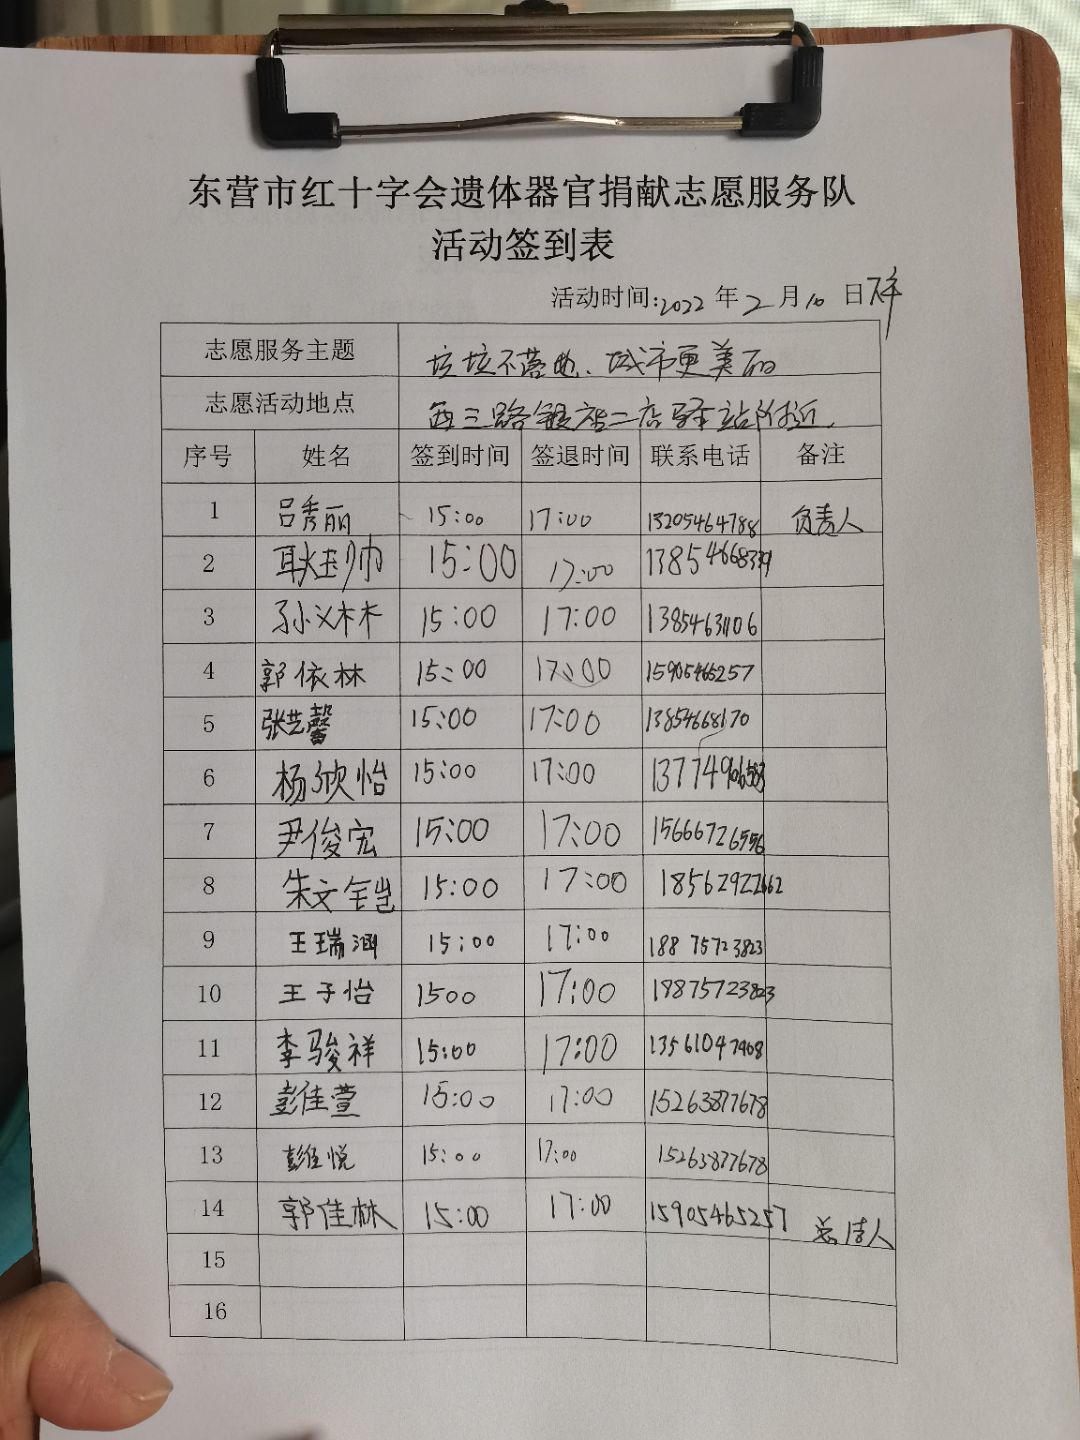 东营市红十字会遗体器官捐献志愿服务队
活动签到表
活动时间:2022年2月10日下午
志愿服务主题 垃圾不落地、城市更美丽
志愿活动地点 西三路银座二店驿站附近.
序号 姓名 签到时间 签退时间 联系电话 备注
1 吕秀丽 15:00 17:00 13205464788 负责人
2 耿玉帅 15:00 17:00
3 孙义林 15:00 17:00 13854631106
4 郭依林 15:00 17:00 15905465257
5 张艺馨 15:00 17:00 13854668170
6 杨欣怡 15:00 17:00
7 尹俊宏 15:00 17:00 15666726556
8 朱文铠 15:00 17:00 18562922662
9 王瑞涵 15:00 17:00 18875723823
10 王子怡 1500 17:00 18875723823
11 李骏祥 15:00 17:00 13561047908
12 彭佳萱 15:00 17:00 15263877678
13 彭佳悦 15:00 17:00 15263877678
14 郭佳林 15:00 17:00 15905465257 总结人
15
16